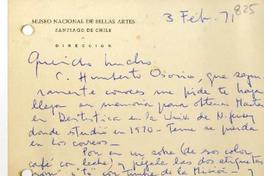 MUSEO NACIONAL DE BELLAS ARTES
SANTIAGO DE CHILE
DIRECCION
3 Feb. 71
825
Querido Lucho
C. Humberto Osorio, que segu-
ramente conoces me pide te haga
llegar su memoria para obtener Master
en Dentistica en la Univ. de N. Jersey
donde estudió en 1970 - Teme se pierda
en los correos.
Pon en un sobre (de esos color
café con leche) y pégale las dos etiquetas